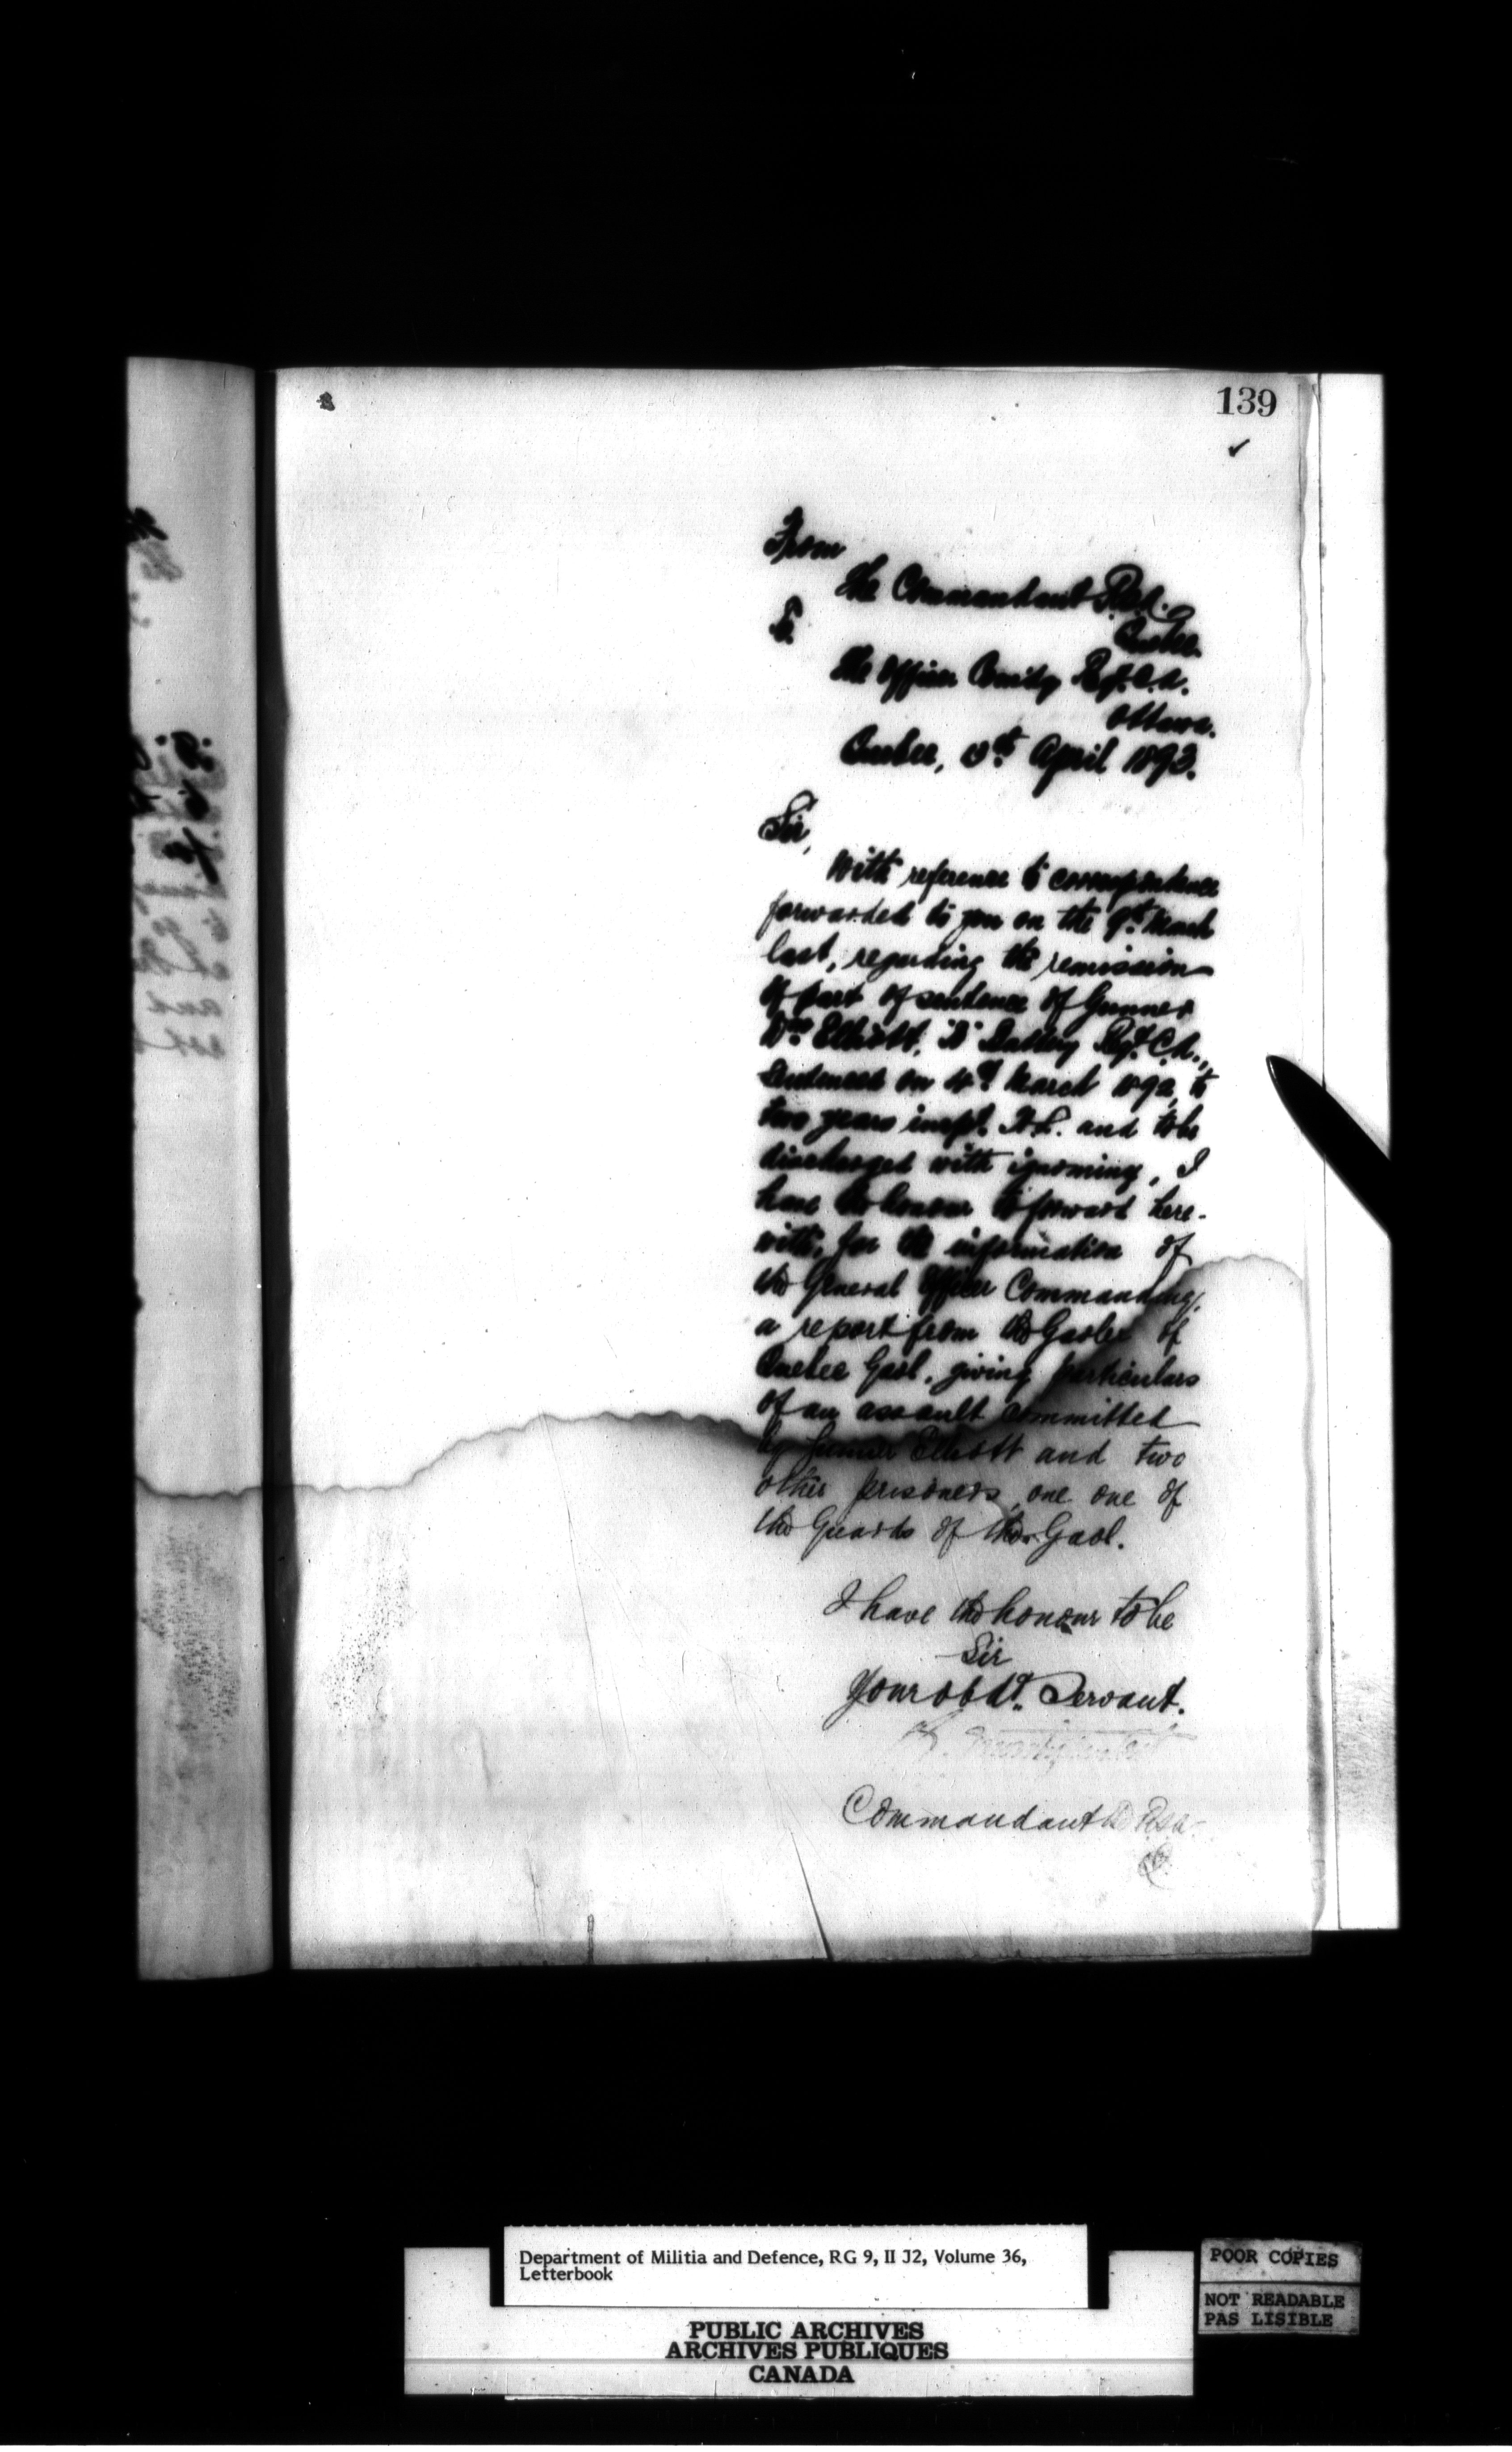 139
From
The Commandant R.S.A.
Quebec.
To
The Officer Comdg Regt. C.A.
Ottawa.
Quebec, April 1893.
Sir,
With reference to correspondence
forwarded to you on the 9th March
last, regarding the remission
of part of sentence of Gunner
Wm Elliott, "B" Battery Regt. C.A.,
sentenced on March 1892, to
two years impt. H.L. and to be
discharged with ignominy, I
have the honour to forward here-
with, for the information of
the General Officer Commanding,
a report from the Gaoler of
Quebec Gaol, giving particulars
of an assault committed
by Gunner Elliott and two
other prisoners, one one of
the Guards of the Gaol.
I have the honour to be
Sir
Your obdt. Servant.
Commandant
Department of Militia and Defence, RG 9, II J2, Volume 36,
Letterbook
PUBLIC ARCHIVES
ARCHIVES PUBLIQUES
CANADA
POOR COPIES
NOT READABLE
PAS LISIBLE